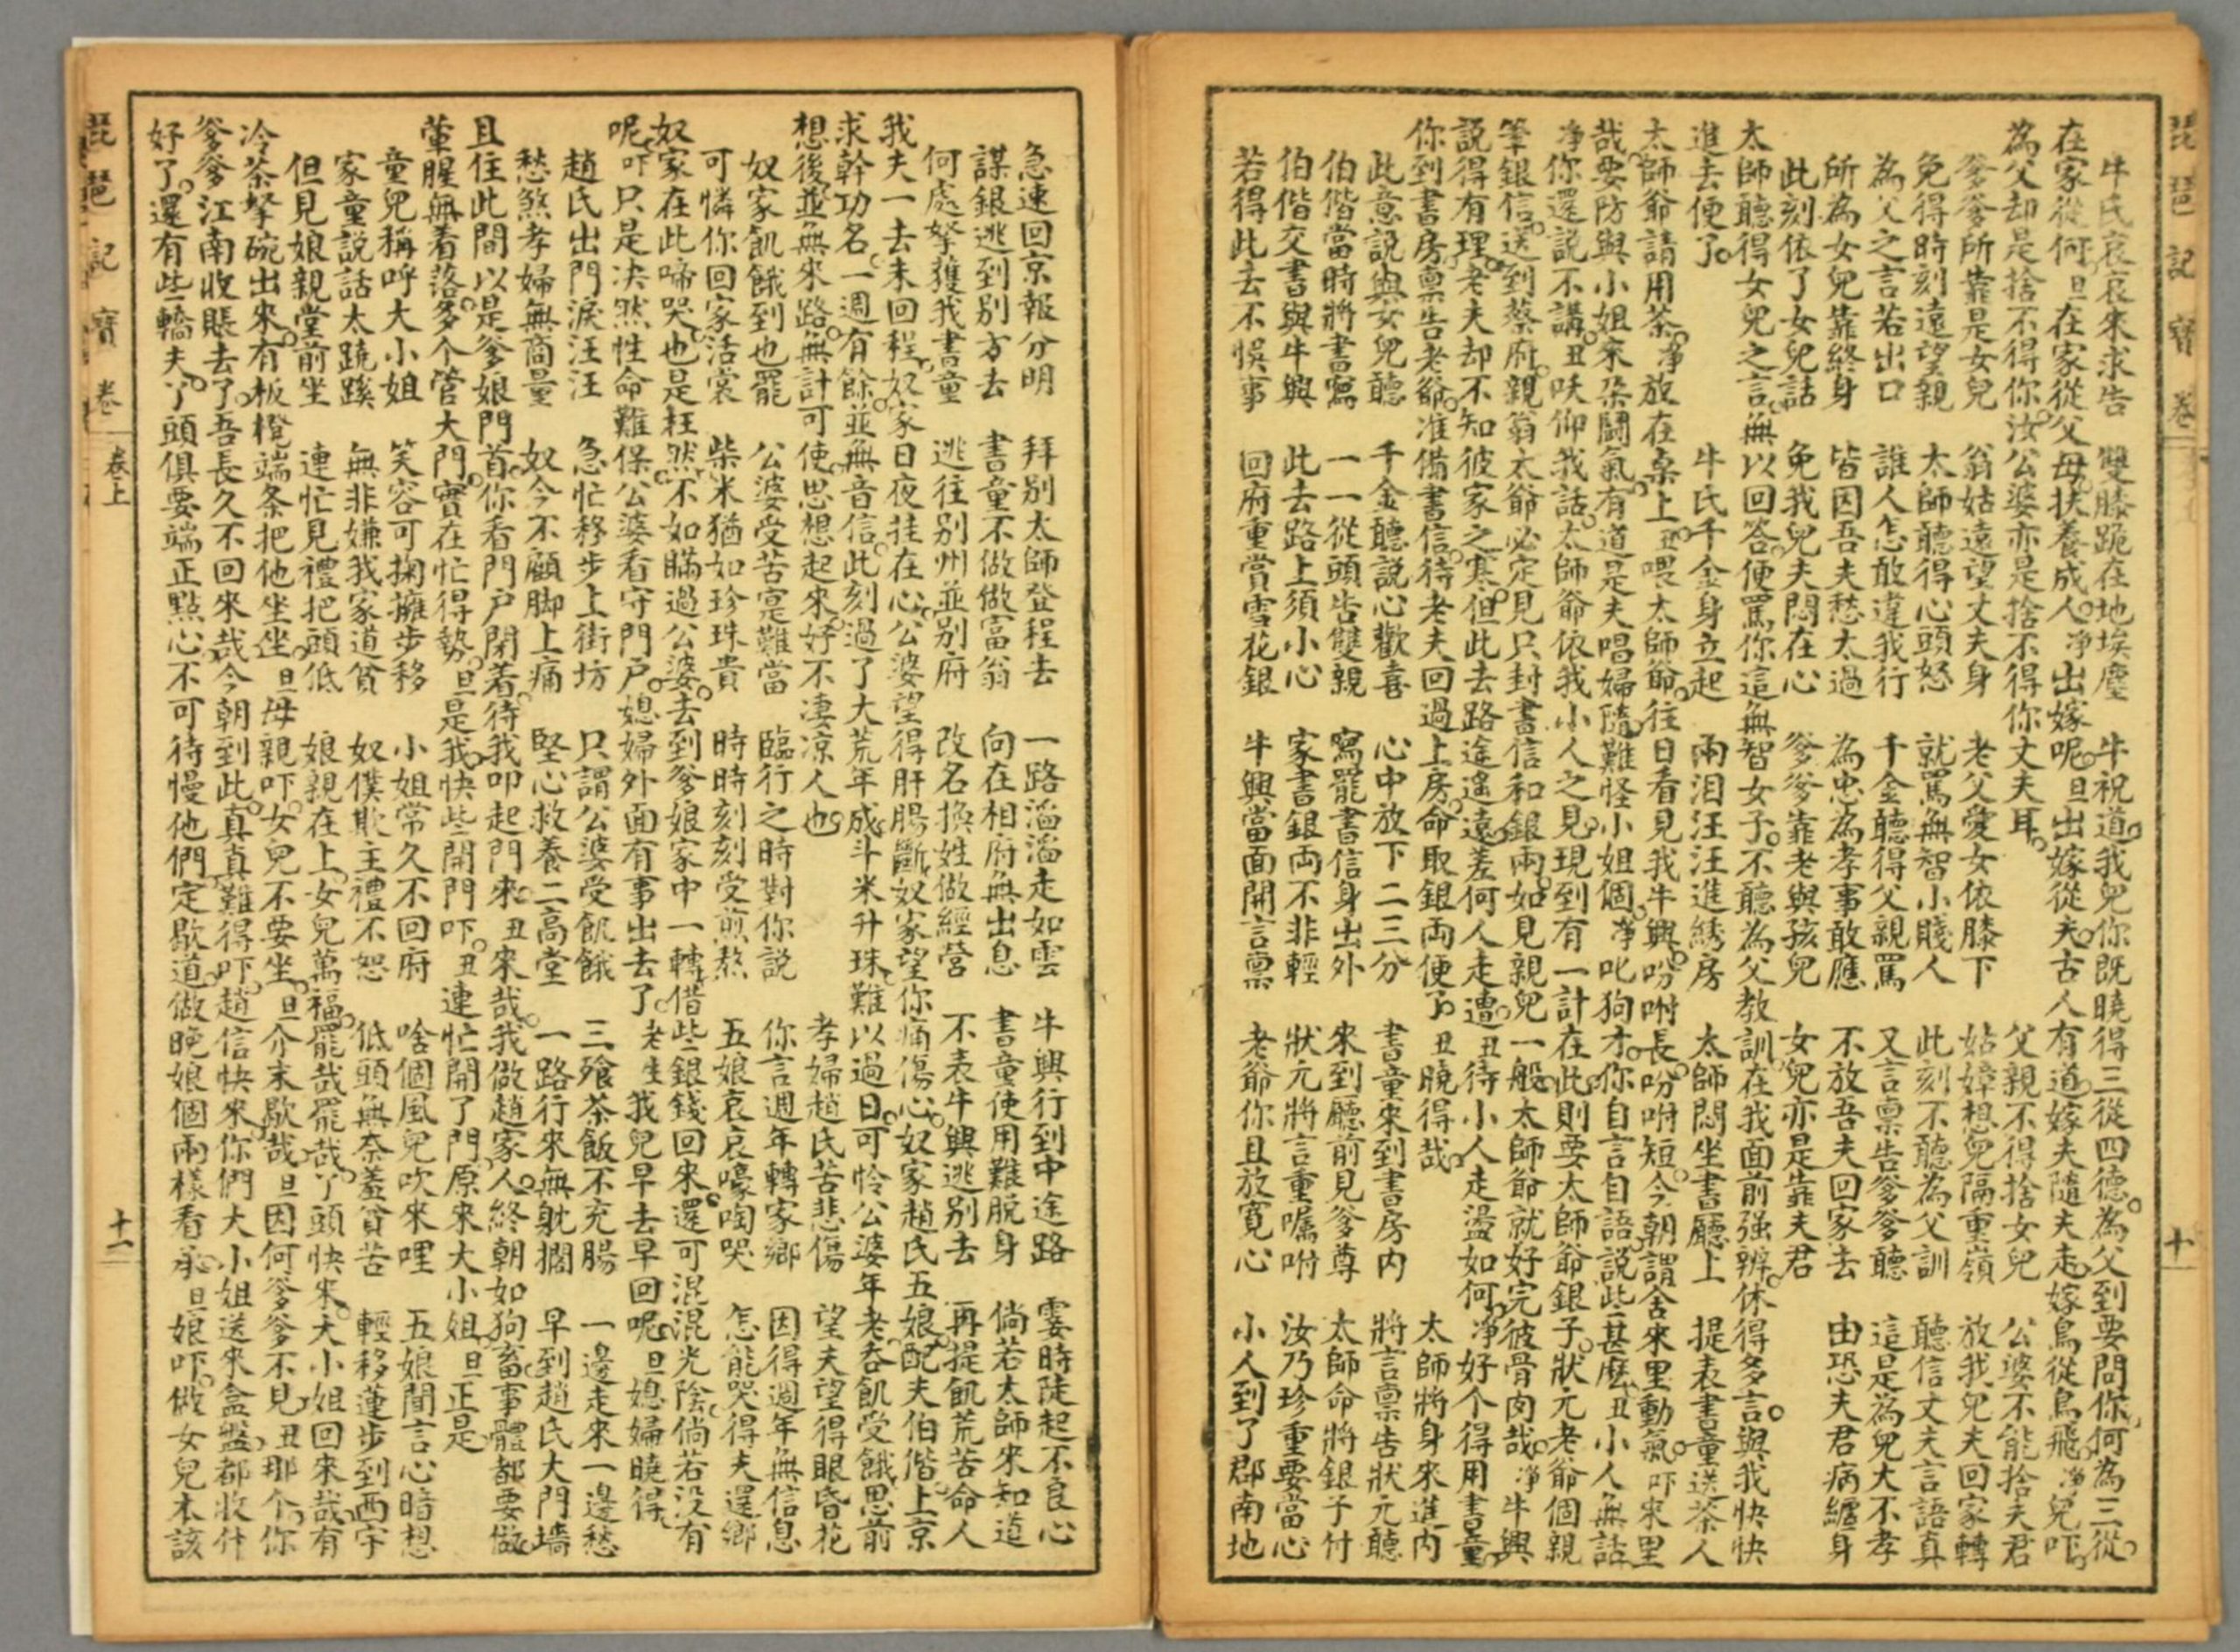 琵琶記 寳卷 十
牛氏哀哀來求告 雙膝跪在地埃塵 牛祝道。我兒你既曉得三從四德。為父到要問你何為三從。
在家從何。旦在家從父母。扶養成人。淨出嫁呢。旦出嫁從夫。古人有道。嫁夫隨夫走。嫁鳥從鳥飛。淨兒吓。
為父却是捨不得你。汝公婆亦是捨不得你丈夫耳。 父親不得捨女兒 公婆不能捨夫君
爹爹所靠是女兒 翁姑遠望丈夫身 老父愛女依膝下 姑嫜想兒隔重嶺 放我兒夫回家轉
免得時刻遠望親 太師聽得心頭怒 就罵無智小賤人 此刻不聽為父訓 聽信丈夫言語真
為父之言若出口 誰人怎敢違我行 千金聽得父親罵 又言禀告爹爹聽 這是為兒大不孝
所為女兒靠終身 皆因吾夫愁太過 為忠為孝事敢應 不放吾夫回家去 由恐夫君病纏身
此刻依了女兒話 免我兒夫悶在心 爹爹靠老與孩兒 女兒亦是靠夫君
太師聽得女兒之言。無以回答。便罵你這無智女子。不聽為父教訓。在我面前强辨。休得多言。與我快快
進去便了。 牛氏千金身立起 兩泪汪汪進綉房 太師悶坐書廳上 提表書童送茶人
太師爺請用茶。淨放在桌上。丑喂太師爺。往日看見我牛興。吩咐長。吩咐短。今朝謂舍來里動氣。吓來里
哉。要防與小姐來朶鬭氣。有道是夫唱婦隨。難怪小姐個。淨叱狗才。你自言自語。說些甚麽。丑小人無話
淨你還說不講。丑呋仰我話。太師爺依我小人之見。現到有一計在此。則要太師爺銀子。狀元老爺個親
筆銀信。送到蔡府。親翁太爺必定見只封書信和銀兩。如見親兒一般。太師爺就好完彼骨肉哉。淨牛興
說得有理。老夫却不知彼家之寒。但此去路途遙遠。差何人走遭。丑待小人走盪如何。淨好个得用書童
你到書房。禀告老爺。准備書信。待老夫回過上房。命取銀両便了。丑曉得哉。 太師將身來進內
此意說與女兒聽 千金聽說心歡喜 心中放下二三分 書童來到書房內 將言禀告狀元聽
伯偕當時將書寫 一一從頭告雙親 寫罷書信身出外 來到廳前見爹尊 太師命將銀子付
伯偕交書與牛興 此去路上須小心 家書銀両不非輕 狀元將言重囑咐 汝乃珍重要當心
若得此去不悞事 回府重賞雪花銀 牛興當面開言禀 老爺你且放寬心 小人到了郡南地
急速回京報分明 拜别太師登程去 一路滔滔走如雲 牛興行到中途路 霎時陡起不良心
謀銀逃到别方去 書童不做做富翁 向在相府無出息 書童使用難脫身 倘若太師來知道
何處拏獲我書童 逃往别州並别府 改名換姓做經營 不表牛興逃别去 再提飢荒苦命人
我夫一去未回程。奴家日夜挂在心。公婆望得肝腸斷。奴家望你痛傷心。奴家趙氏五娘。配夫伯偕。上京
求幹功名。一週有餘。並無音信。此刻過了大荒年成。斗米升珠。難以過日。可怜公婆年老。吞飢受餓。思前
想後。並無來路。無計可使。思想起來。好不凄凉人也。 孝婦趙氏苦悲傷 望夫望得眼昏花
奴家飢餓到也罷 公婆受苦寔難當 臨行之時對你説 你言週年轉家鄉 因得週年無信息
可憐你回家活裳 柴米猶如珍珠貴 時時刻刻受煎熬 五娘哀哀嚎啕哭 怎能哭得夫還鄉
奴家在此啼哭。也是枉然。不如瞞過公婆。去到爹娘家中一轉。借些銀錢回來。還可混混光陰。倘若没有
呢。吓只是决然性命難保。公婆看守門户。媳婦外面有事出去了。老生我兒早去早回呢。旦媳婦曉得。
趙氏出門淚汪汪 急忙移步上街坊 只謂公婆受飢餓 三飱茶飯不充腸 一邊走來一邊愁
愁煞孝婦無商量 奴今不顧脚上痛 堅心救養二高堂 一路行來無躭擱 早到趙氏大門墻
且住此間以是爹娘門首。你看門户閉着。待我叩起門來。丑來哉。我做趙家人。終朝如狗畜。事體都要做
葷腥無着落。多个管大門。實在忙得勢。旦是我。快些開門吓。丑連忙開了門。原來大小姐。旦正是
童兒稱呼大小姐 笑容可掬擁步移 小姐常久不回府 啥個風兒吹來哩 五娘聞言心暗想
家童説話太蹺蹊 無非嫌我家道貧 奴僕欺主禮不恕 低頭無奈羞貧苦 輕移蓮步到西宇
但見娘親堂前坐 連忙見禮把頭低 娘親在上。女兒萬福。罷哉罷哉。丫頭快來。大小姐回來哉。有
冷茶拏碗出來。有板橙端条把他坐坐。旦母親吓。女兒不要坐。旦介末歇哉。旦因何爹爹不見。丑那个。你
爹爹江南收賬去了。吾長久不回來哉。今朝到此。真真難得吓。趙信快來。你們大小姐送來盒盤。都收什
好了。還有些轎夫。丫頭俱要端正點心。不可待慢他們。定歇道。做晚娘個。兩樣看承。旦娘吓。做女兒本該
琵琶記 寳卷 卷上 十一